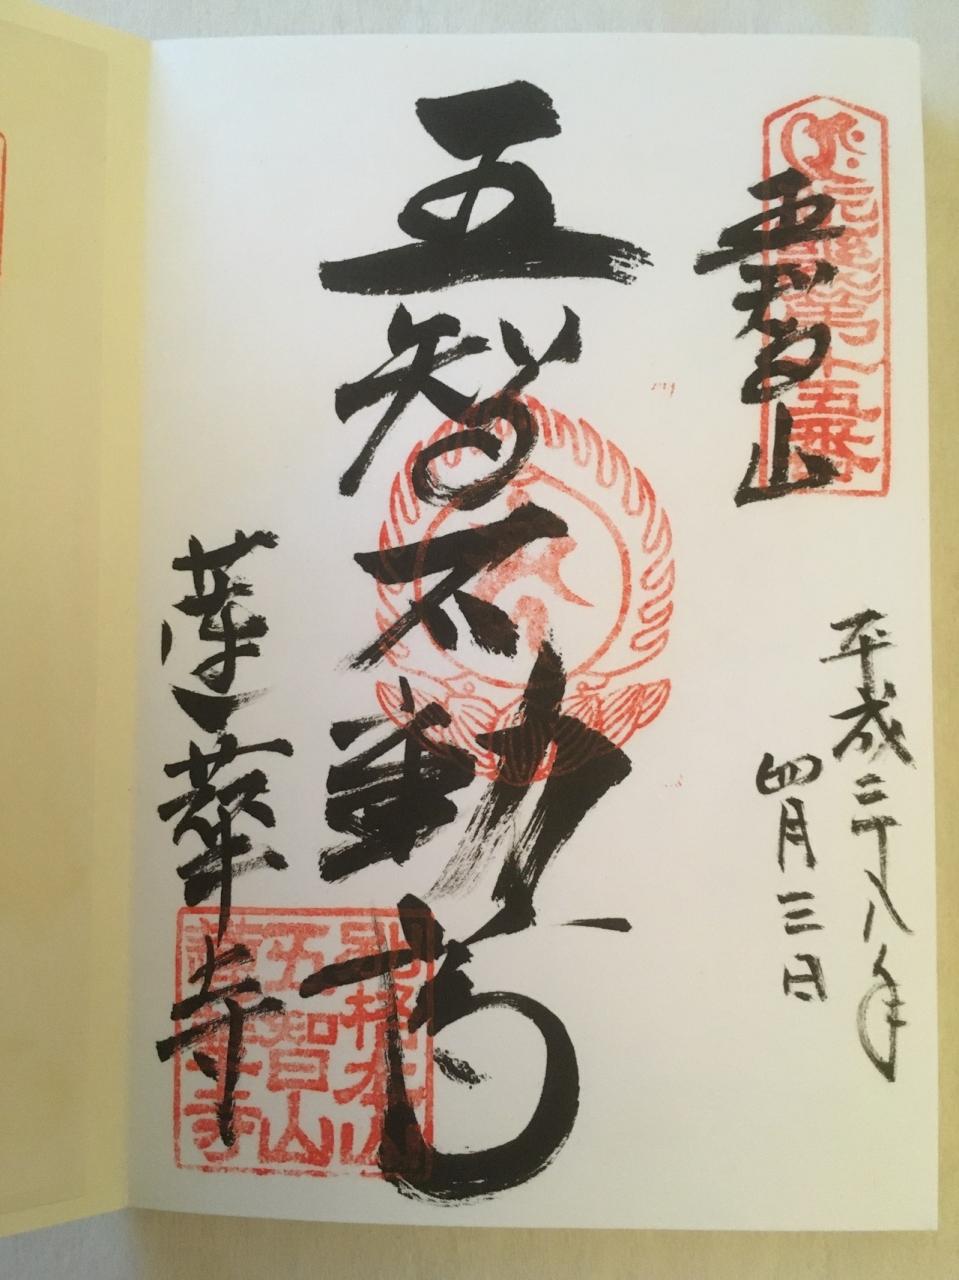 第十五番
五智山
平成二十八年
四月三日
五智不動尊
蓮華寺
別格本山
五智山
蓮華寺